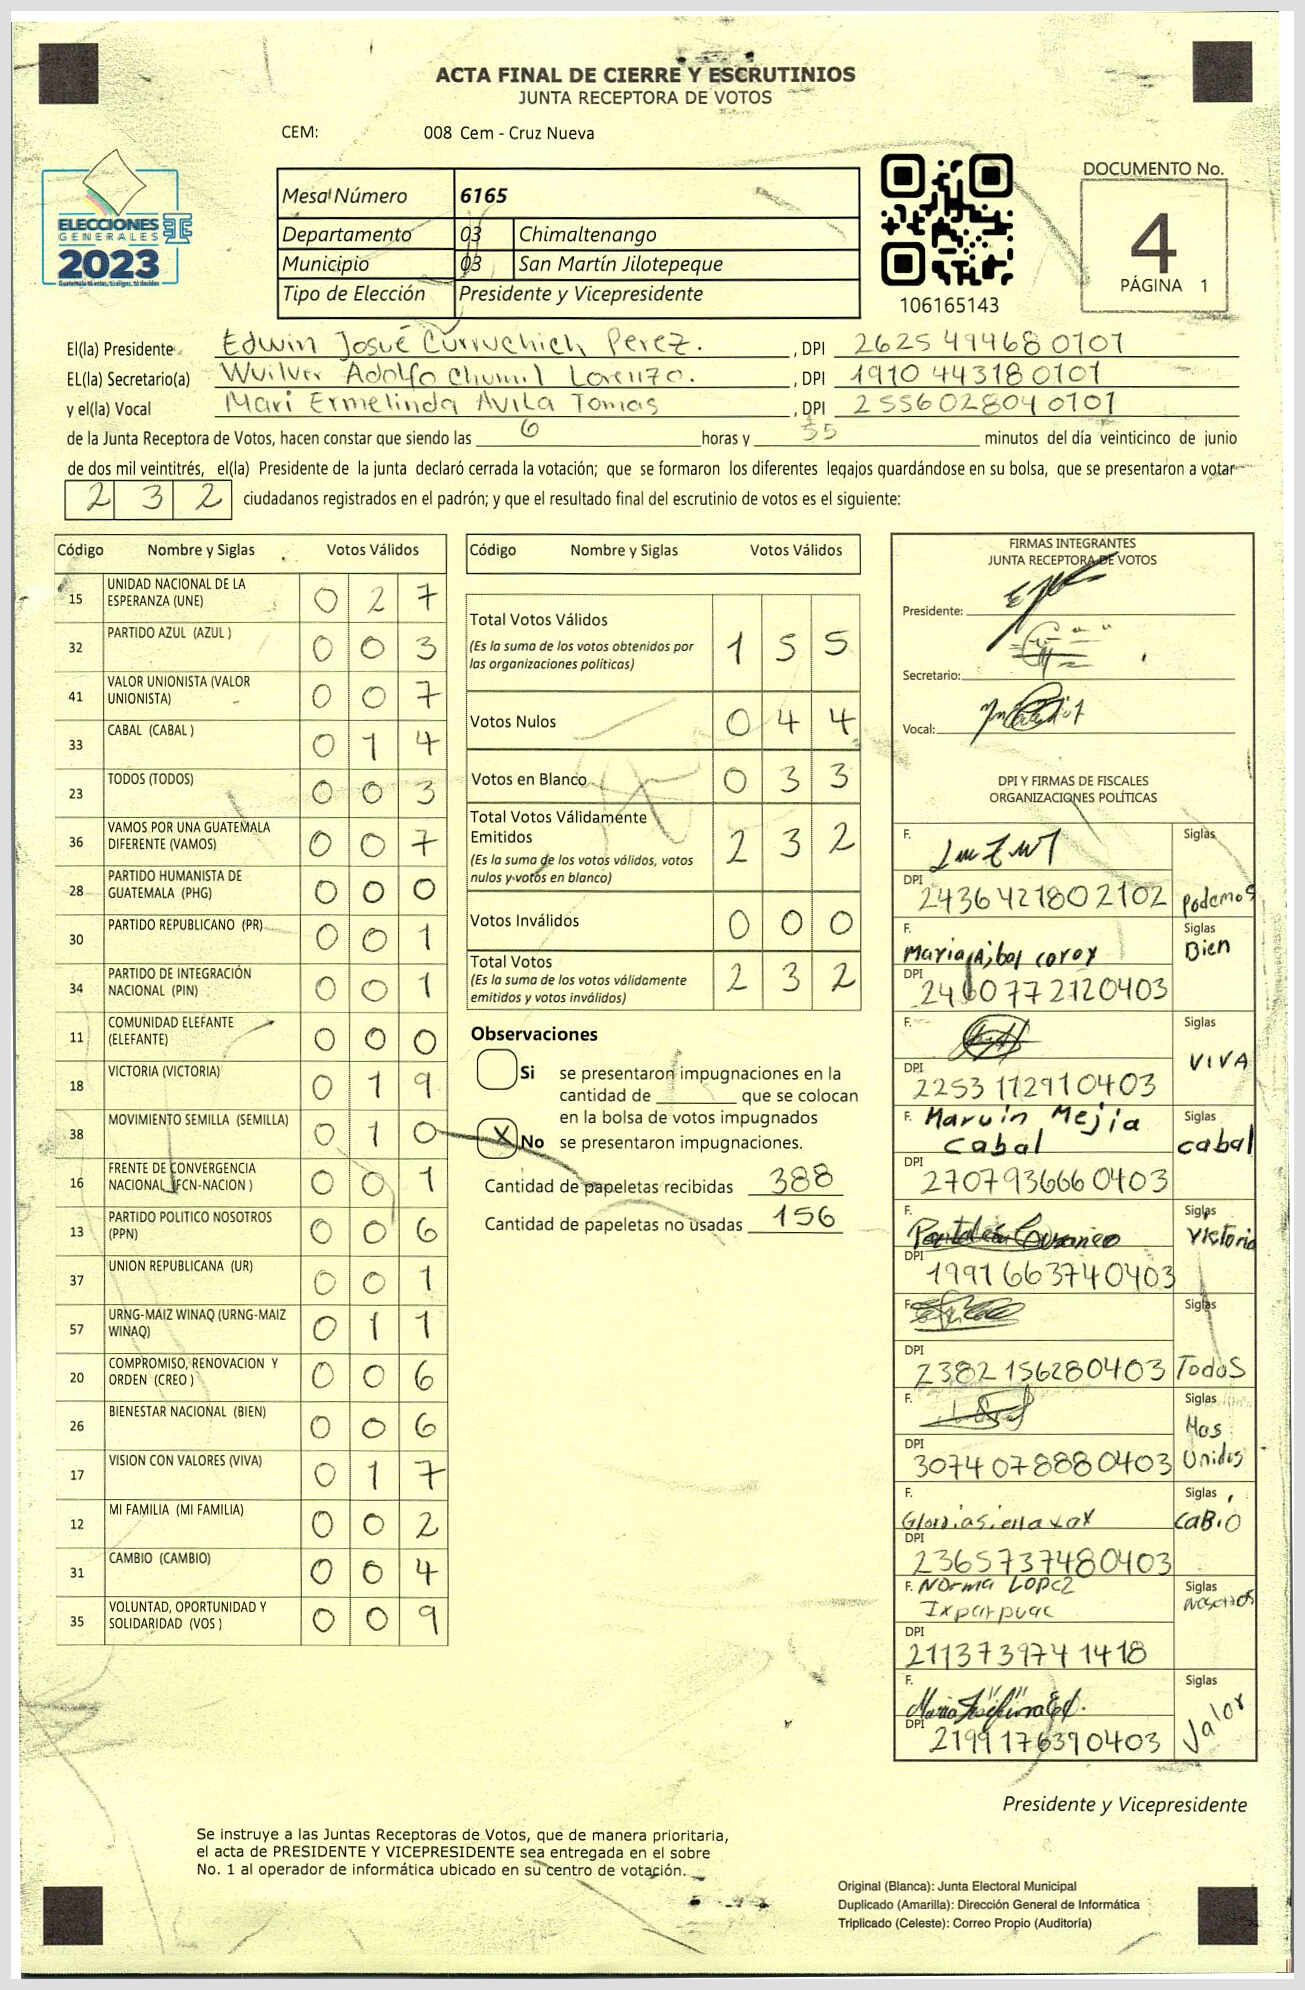 ACTA FINAL DE CIERRE Y ESCRUTINIOS
JUNTA RECEPTORA DE VOTOS
CEM: 008 Cem - Cruz Nueva
ELECCIONES
GENERALES
2023
Guatemala tú votas, tú eliges, tú decides
Mesa Número 6165
Departamento 03 Chimaltenango
Municipio 03 San Martín Jilotepeque
Tipo de Elección Presidente y Vicepresidente
106165143
DOCUMENTO No.
4
PÁGINA 1
El(la) Presidente Edwin Josué Curruchich Perez. , DPI 2625 49468 0101
EL(la) Secretario(a) Wuilver Adolfo Chumil Lorenzo. , DPI 1910 44318 0101
y el(la) Vocal Mari Ermelinda Avila Tomas , DPI 2556028040101
de la Junta Receptora de Votos, hacen constar que siendo las 6 horas y 35 minutos del día veinticinco de junio
de dos mil veintitrés, el(la) Presidente de la junta declaró cerrada la votación; que se formaron los diferentes legajos guardándose en su bolsa, que se presentaron a votar
2 3 2 ciudadanos registrados en el padrón; y que el resultado final del escrutinio de votos es el siguiente:
Código Nombre y Siglas Votos Válidos
15 UNIDAD NACIONAL DE LA ESPERANZA (UNE) 0 2 7
32 PARTIDO AZUL (AZUL ) 0 0 3
41 VALOR UNIONISTA (VALOR UNIONISTA) 0 0 7
33 CABAL (CABAL ) 0 1 4
23 TODOS (TODOS) 0 0 3
36 VAMOS POR UNA GUATEMALA DIFERENTE (VAMOS) 0 0 7
28 PARTIDO HUMANISTA DE GUATEMALA (PHG) 0 0 0
30 PARTIDO REPUBLICANO (PR) 0 0 1
34 PARTIDO DE INTEGRACIÓN NACIONAL (PIN) 0 0 1
11 COMUNIDAD ELEFANTE (ELEFANTE) 0 0 0
18 VICTORIA (VICTORIA) 0 1 9
38 MOVIMIENTO SEMILLA (SEMILLA) 0 1 0
16 FRENTE DE CONVERGENCIA NACIONAL (FCN-NACION ) 0 0 1
13 PARTIDO POLITICO NOSOTROS (PPN) 0 0 6
37 UNION REPUBLICANA (UR) 0 0 1
57 URNG-MAIZ WINAQ (URNG-MAIZ WINAQ) 0 1 1
20 COMPROMISO, RENOVACION Y ORDEN (CREO ) 0 0 6
26 BIENESTAR NACIONAL (BIEN) 0 0 6
17 VISION CON VALORES (VIVA) 0 1 7
12 MI FAMILIA (MI FAMILIA) 0 0 2
31 CAMBIO (CAMBIO) 0 0 4
35 VOLUNTAD, OPORTUNIDAD Y SOLIDARIDAD (VOS ) 0 0 9
Código Nombre y Siglas Votos Válidos
Total Votos Válidos 1 5 5
(Es la suma de los votos obtenidos por
las organizaciones políticas)
Votos Nulos 0 4 4
Votos en Blanco 0 3 3
Total Votos Válidamente
Emitidos 2 3 2
(Es la suma de los votos válidos, votos
nulos y votos en blanco)
Votos Inválidos 0 0 0
Total Votos 2 3 2
(Es la suma de los votos válidamente
emitidos y votos inválidos)
Observaciones
Si se presentaron impugnaciones en la
cantidad de ________ que se colocan
en la bolsa de votos impugnados
X No se presentaron impugnaciones.
Cantidad de papeletas recibidas 388
Cantidad de papeletas no usadas 156
FIRMAS INTEGRANTES
JUNTA RECEPTORA DE VOTOS
Presidente:
Secretario:
Vocal:
DPI Y FIRMAS DE FISCALES
ORGANIZACIONES POLÍTICAS
F. Siglas
DPI 2436421802102 Podemos
F. Maria Ajbal coroy Siglas Bien
DPI 2460772120403
F. Siglas VIVA
DPI 2253112910403
F. Marvin Mejia Cabal Siglas cabal
DPI 2707936660403
F. Siglas Victoria
DPI 1991663740403
F. Siglas
DPI 2382156280403 Todos
F. Siglas Mas Unidos
DPI 3074078880403
F. Siglas CABIO
DPI 2365737480403
F. Norma Lopez Ixparpuac Siglas Nosotros
DPI 2113739741418
F. Siglas Valor
DPI 2199176390403
Presidente y Vicepresidente
Se instruye a las Juntas Receptoras de Votos, que de manera prioritaria,
el acta de PRESIDENTE Y VICEPRESIDENTE sea entregada en el sobre
No. 1 al operador de informática ubicado en su centro de votación.
Original (Blanca): Junta Electoral Municipal
Duplicado (Amarilla): Dirección General de Informática
Triplicado (Celeste): Correo Propio (Auditoría)